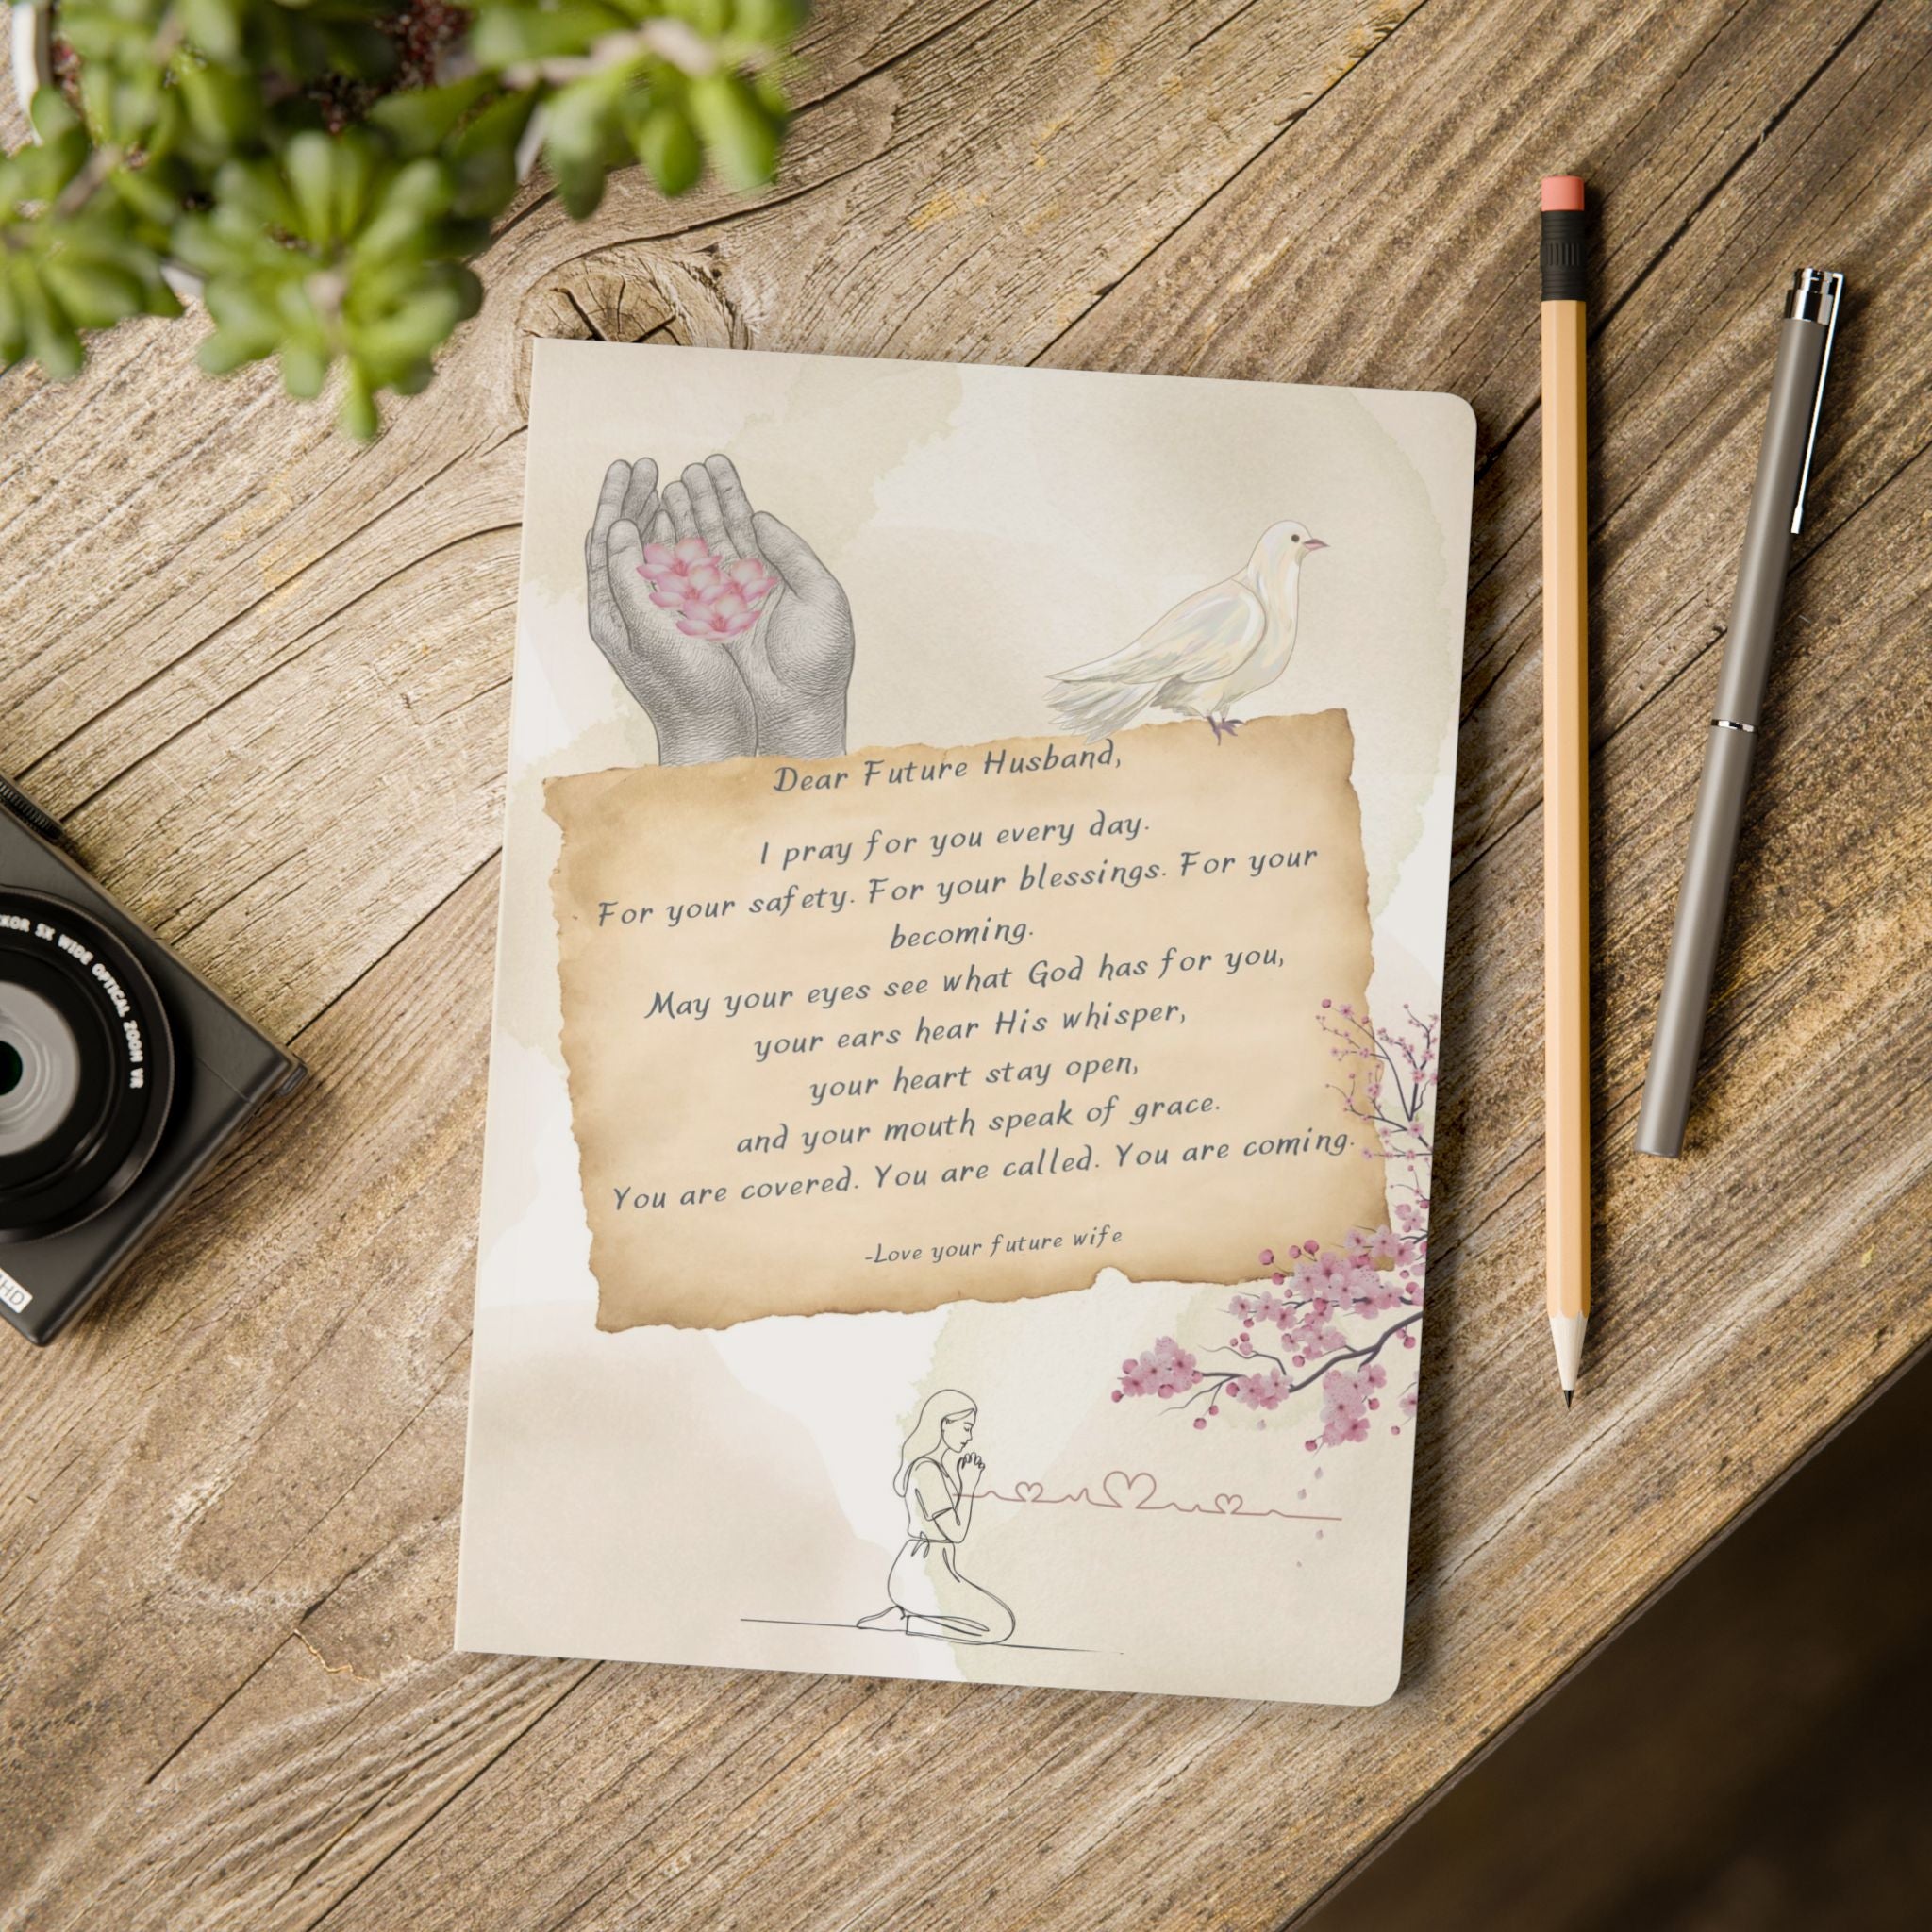 Dear Future Husband,
I pray for you every day.
For your safety. For your blessings. For your
becoming.
May your eyes see what God has for you,
your ears hear His whisper,
your heart stay open,
and your mouth speak of grace.
You are covered. You are called. You are coming.
-Love your future wife
SX WIDE OPTICAL ZOOM VR
HD